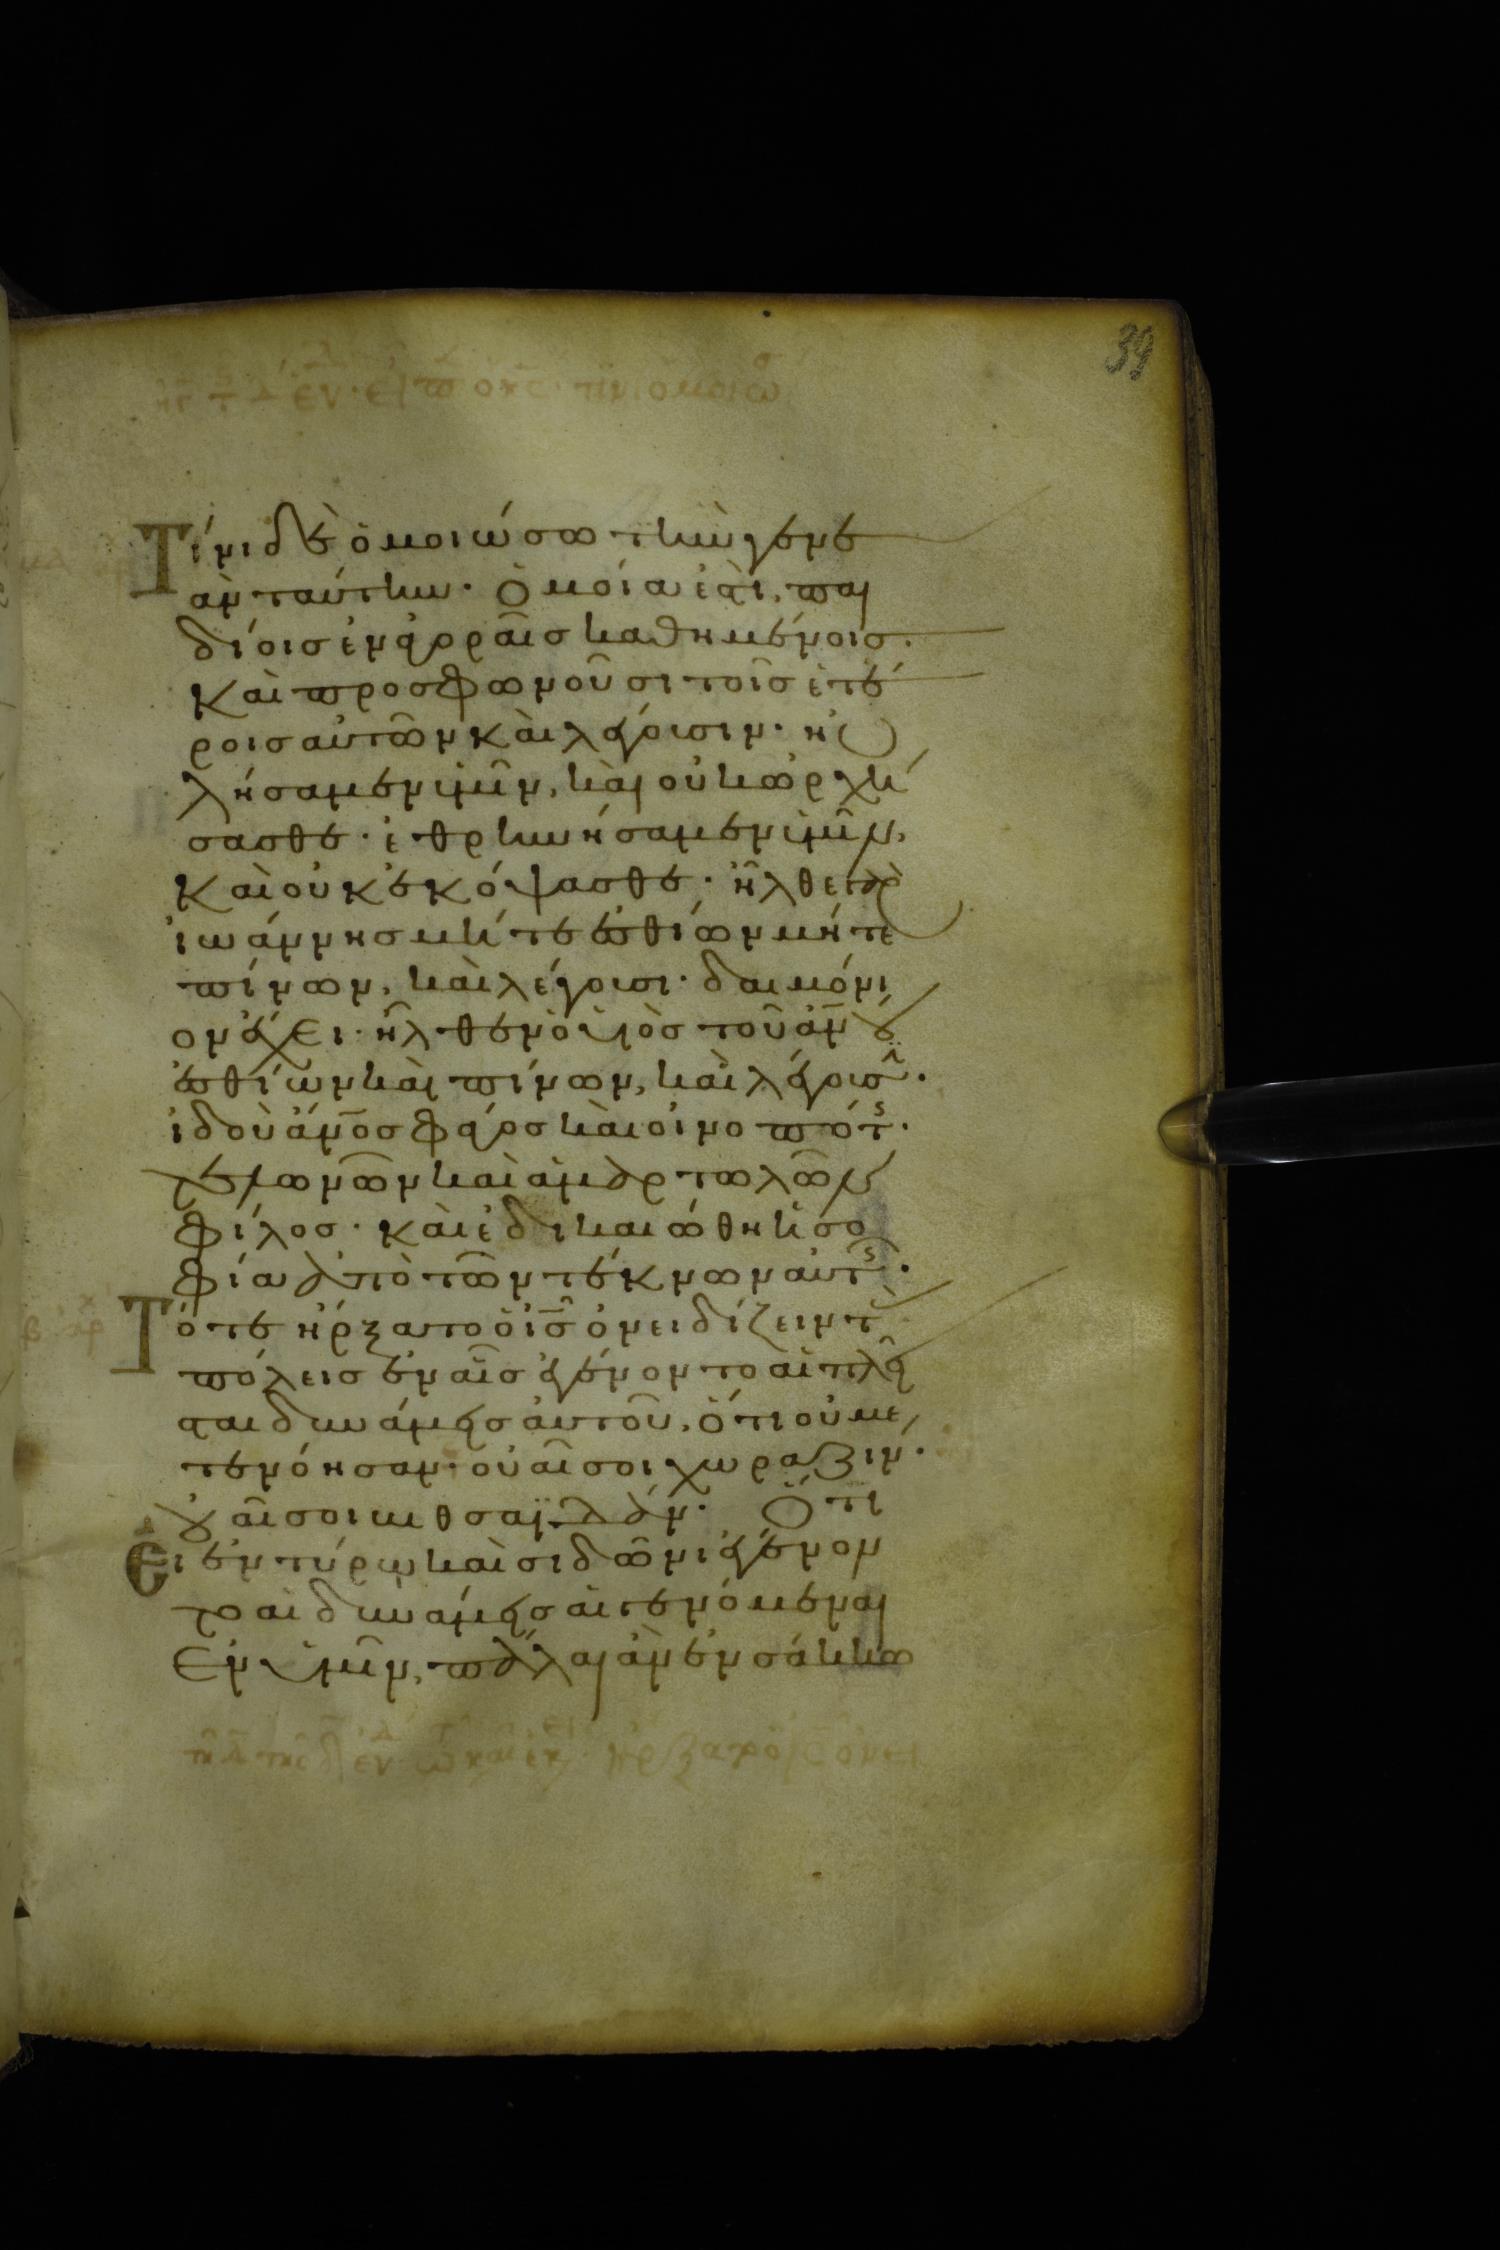 39
Τίνι δὲ ὁμοιώσω τὴν γενε
ὰν ταύτην. Ὁμοία ἐστὶ, παι
δίοις ἐν ἀγοραῖς καθημένοις.
Καὶ προσφωνοῦσι τοῖς ἑτέ
ροις αὐτῶν καὶ λέγουσιν. ηὐ
λήσαμεν ὑμῖν, καὶ οὐκ ὠρχή
σασθε. ἐθρηνήσαμεν ὑμῖν,
Καὶ οὐκ ἐκόψασθε. ἦλθε γὰρ
ἰωάννης μήτε ἐσθίων μήτε
πίνων, καὶ λέγουσι. δαιμόνι
ον ἔχει. ἦλθεν ὁ υἱὸς τοῦ ἀνου
ἐσθίων καὶ πίνων, καὶ λέγουσιν.
ἰδοὺ ἄνος φάγος καὶ οἰνοπότης.
τελωνῶν καὶ ἁμαρτωλῶν
φίλος. καὶ ἐδικαιώθη ἡ σο
φία ἀπὸ τῶν τέκνων αὐτῆς.
Τότε ἤρξατο ὁ ις ὀνειδίζειν τὰς
πόλεις ἐν αἷς ἐγένοντο αἱ πλεῖ
σται δυνάμεις αὐτοῦ, ὅτι οὐ με
τενόησαν. οὐαῖ σοι χωραζιν.
οὐαῖ σοι βηθσαϊδάν. Ὅτι
Ει ἐν τύρω καὶ σιδῶνι ἐγένον
το αἱ δυνάμεις αἱ γενόμεναι
Ἐν ὑμῖν, πάλαι ἂν ἐν σάκκω